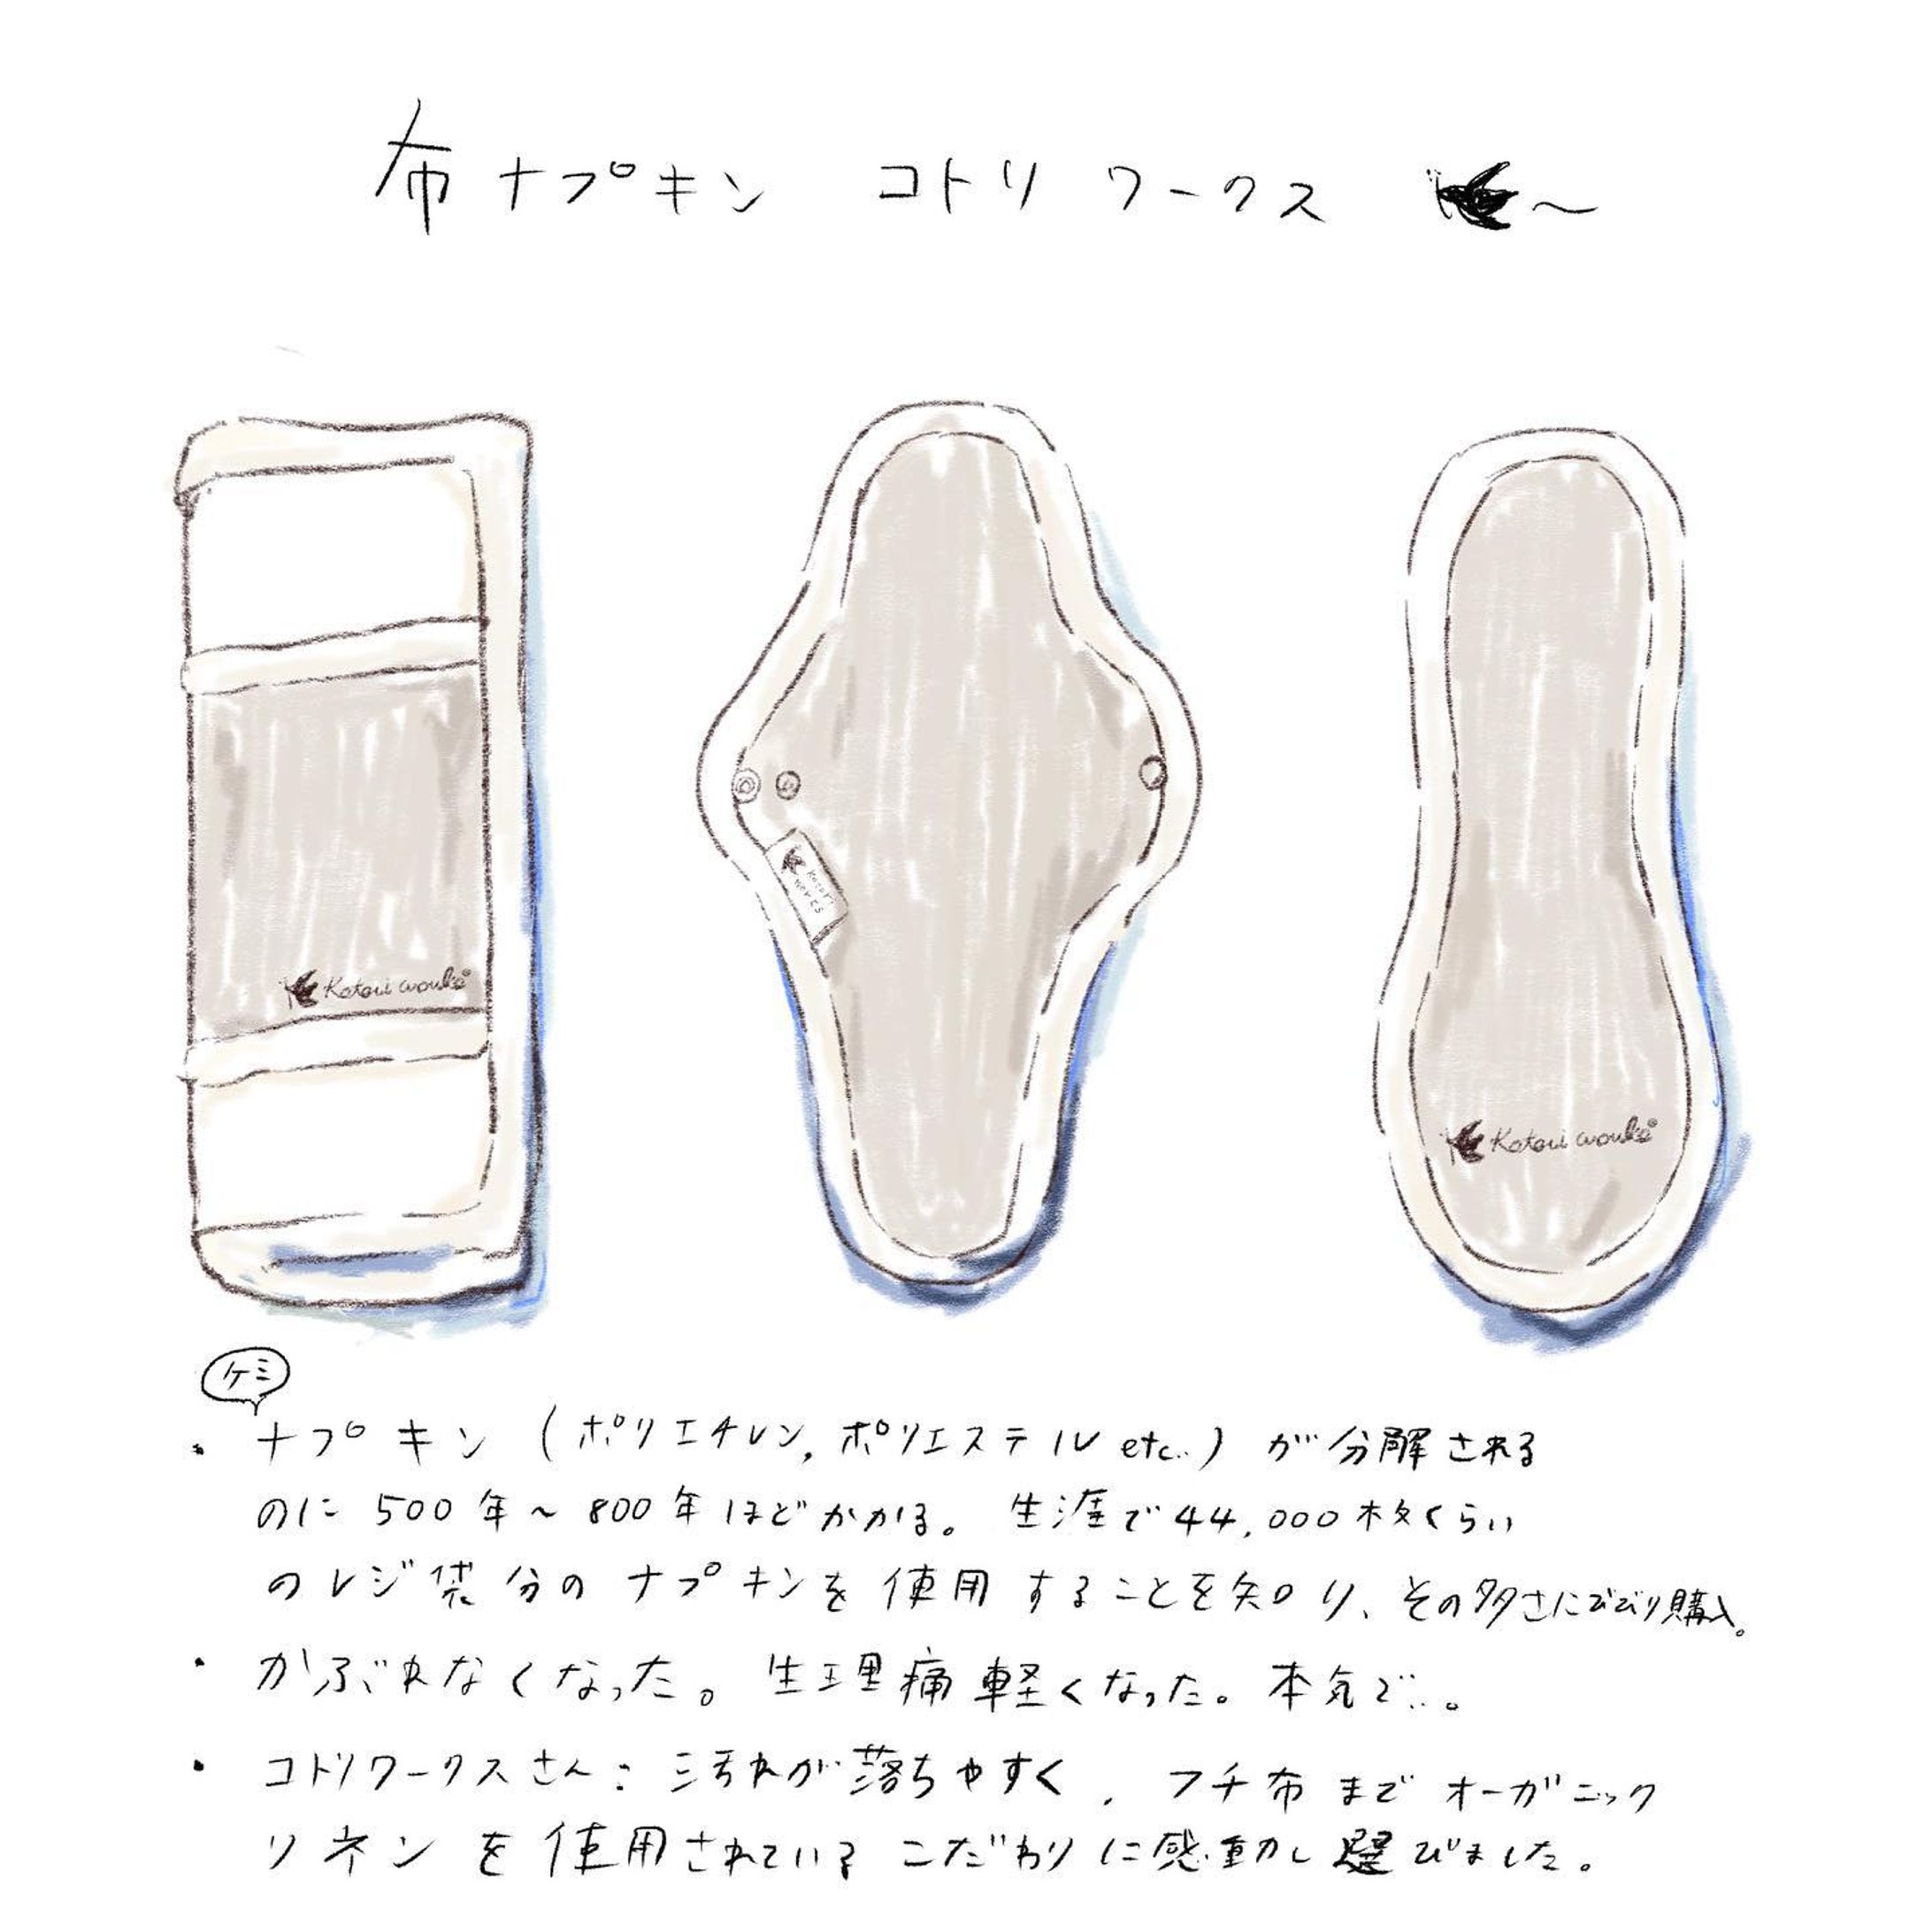 布ナプキン コトリワークス
Kotori works
Kotori works
Kotori works
ケミ
・ナプキン(ポリエチレン,ポリエステル etc..)が分解される
のに 500年〜800年ほどかかる。生涯で44,000枚くらい
のレジ袋分のナプキンを使用することを知り、その多さにびびり購入。
・かぶれなくなった。生理痛軽くなった。本気で…。
・コトリワークスさん:汚れが落ちやすく,フチ布までオーガニック
リネンを使用されているこだわりに感動し選びました。